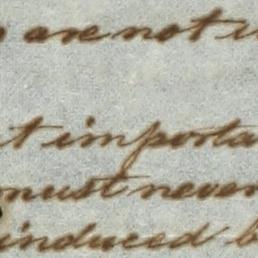 are not
important
must never
induced